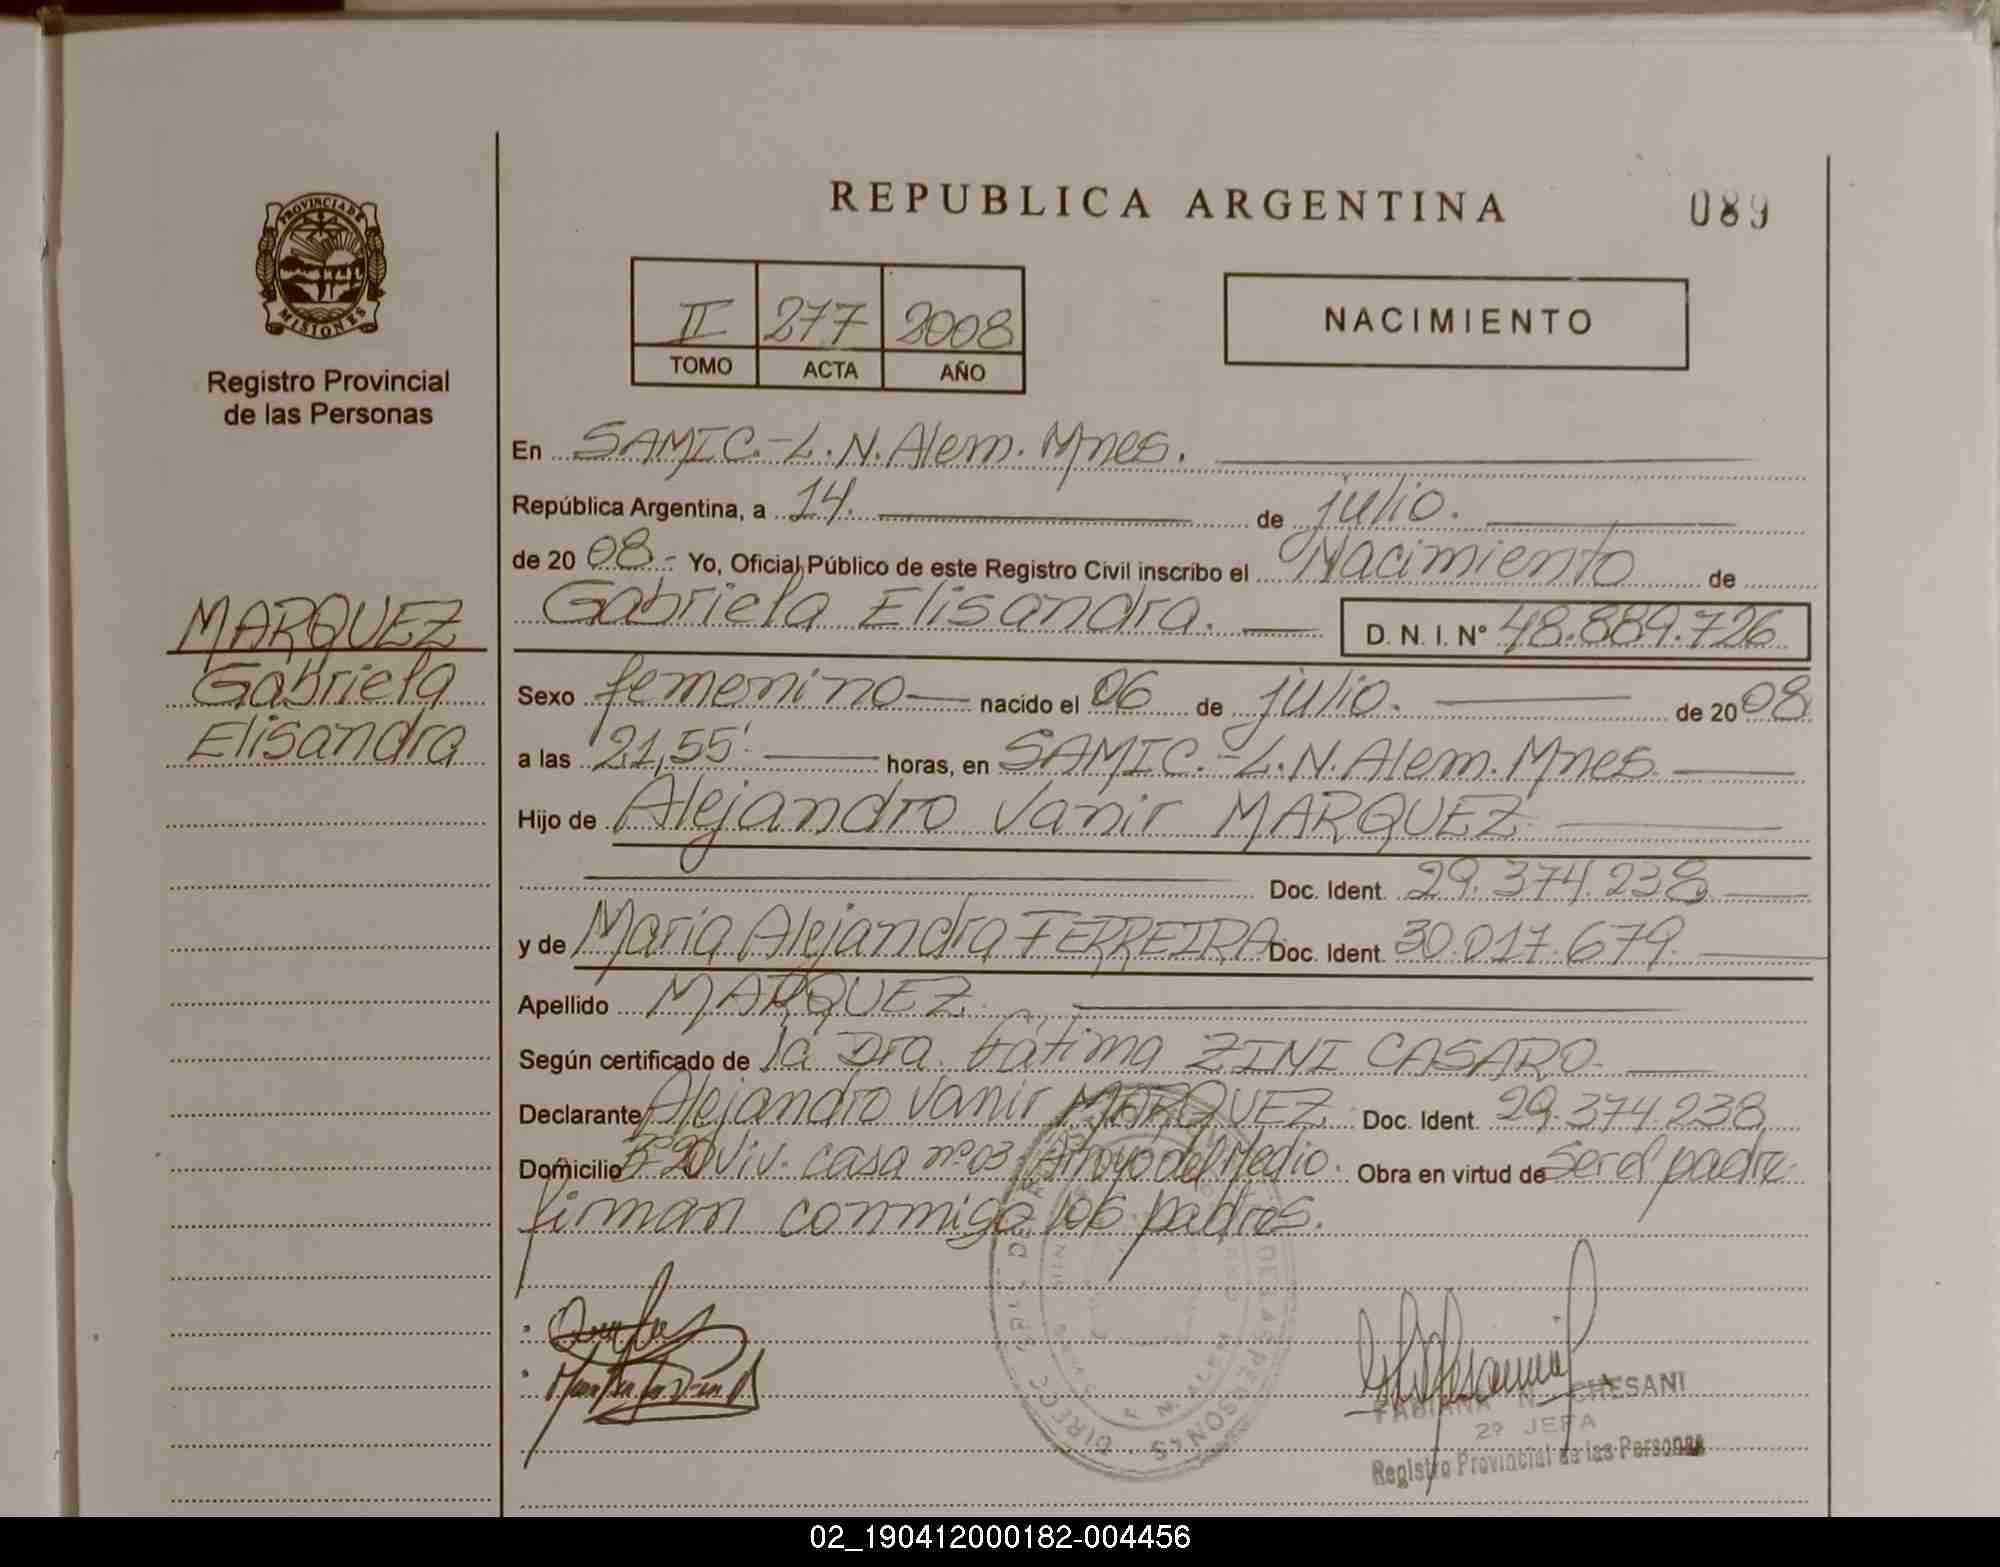 REPUBLICA ARGENTINA
089
PROVINCIA DE
MISIONES
Registro Provincial
de las Personas
II 277 2008
TOMO ACTA AÑO
NACIMIENTO
En SAMIC.-L.N.Alem. Mnes.
República Argentina, a 14. de julio.
de 20 08.- Yo, Oficial Público de este Registro Civil inscribo el Nacimiento de
Gabriela Elisandra. D. N. I. Nº 48.889.726
MARQUEZ
Gabriela
Elisandra
Sexo femenino nacido el 06 de julio. de 20 08
a las 21,55'. horas, en SAMIC.-L.N.Alem. Mnes.
Hijo de Alejandro Vanir MARQUEZ
Doc. Ident. 29.374.238
y de María Alejandra FERREIRA Doc. Ident. 30.017.679.
Apellido MARQUEZ.
Según certificado de la Dra. Fátima ZINI CASARO.
Declarante Alejandro Vanir MARQUEZ. Doc. Ident. 29.374.238
Domicilio Bº 20 Viv. casa nº 03 Arroyo del Medio. Obra en virtud de Ser el padre.
firman conmigo los padres.
FABIANA N. CHESANI
2º JEFA
Registro Provincial de las Personas
02_190412000182-004456